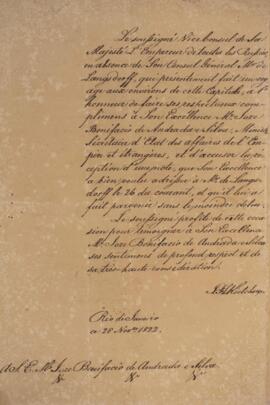 Le soussigné Vice Consul de Sa
Majesté L'Empereur de toutes les Russies,
en absence de Son Consul Général Mr. de
Langsdorff, qui présentement fait un voy
age aux environs de cette Capitale, a l'
honneur de faire ses respectueux com
plimens à Son Excellence Mr. Jozé
Bonifacio de Andrada e Silva, Ministre
Secrétaire d'Etat des affaires de l'Em
pire et étrangères, et d'accuser la ré
ception d'un paquet, que Son Excellence
a bien voulu adresser à Mr. de Langs
dorff le 26 du courant, et qu'il lui a
fait parvenir sans le moindre delai.
Le soussigné profite de cette occa
sion pour témoigner à Son Excellence
Mr. Jozé Bonifacio de Andrada e Silva
ses sentimens de profond respect et de
sa très haute considération.
Rio de Janeiro
ce 28 Novr. 1822.
A S. E. Mr. Jozé Bonifacio de Andrada e Silva